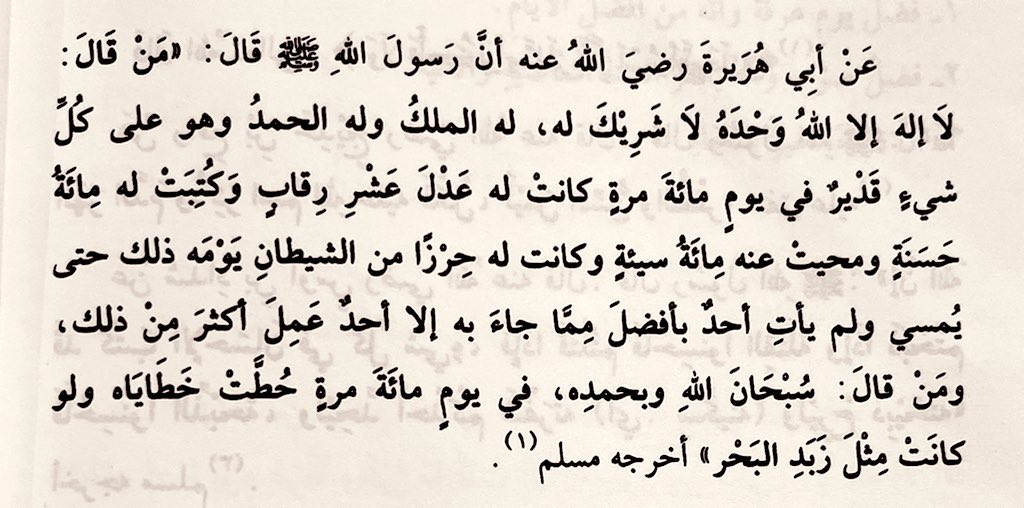 عَنْ أَبِي هُرَيرةَ رضيَ اللهُ عنه أنَّ رَسولَ اللهِ ﷺ قَالَ: «مَنْ قَالَ:
لاَ إلهَ إلا اللهُ وَحْدَهُ لاَ شَرِيْكَ له، له الملكُ وله الحمدُ وهو على كُلِّ
شيءٍ قَدْيرٌ في يومٍ مائةَ مرةٍ كانتْ له عَدْلَ عَشْرِ رِقابٍ وَكُتِبَتْ له مِائَةُ
حَسَنَةٍ ومحيتْ عنه مِائَةُ سيئةٍ وكانت له حِرْزًا من الشيطانِ يَوْمَه ذلك حتى
يُمسي ولم يأتِ أحدٌ بأفضلَ مِمَّا جاءَ به إلا أحدٌ عَمِلَ أكثرَ مِنْ ذلك،
ومَنْ قالَ: سُبْحَانَ اللهِ وبحمدِه، في يومٍ مائَةَ مرةٍ حُطَّتْ خَطَايَاه ولو
كانَتْ مِثْلَ زَبَدِ البَحْر» أخرجه مسلم(١).